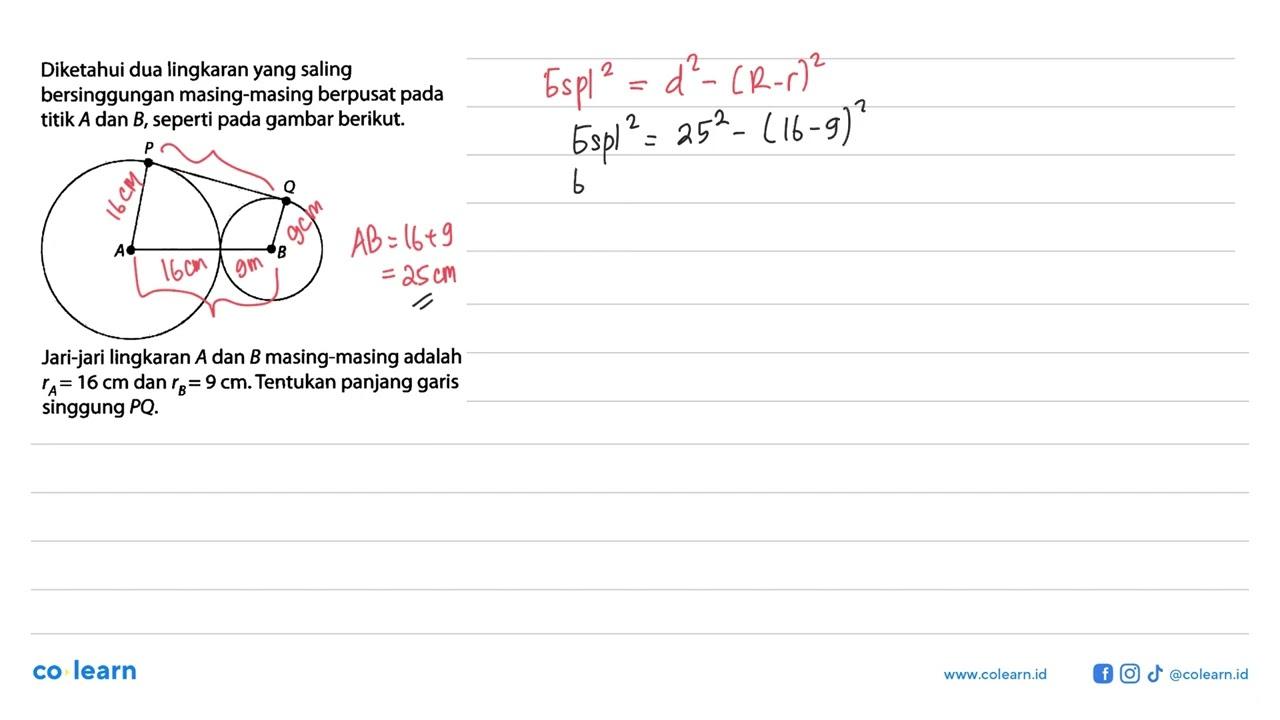 Diketahui dua lingkaran yang saling
bersinggungan masing-masing berpusat pada
titik A dan B, seperti pada gambar berikut.
P
Q
16 cm
9 cm
A
B
16 cm
9 m
AB = 16 + 9
= 25 cm
Jari-jari lingkaran A dan B masing-masing adalah
r_A = 16 cm dan r_B = 9 cm. Tentukan panjang garis
singgung PQ.
Gspl² = d² - (R - r)²
Gspl² = 25² - (16 - 9)²
co learn
www.colearn.id
@colearn.id